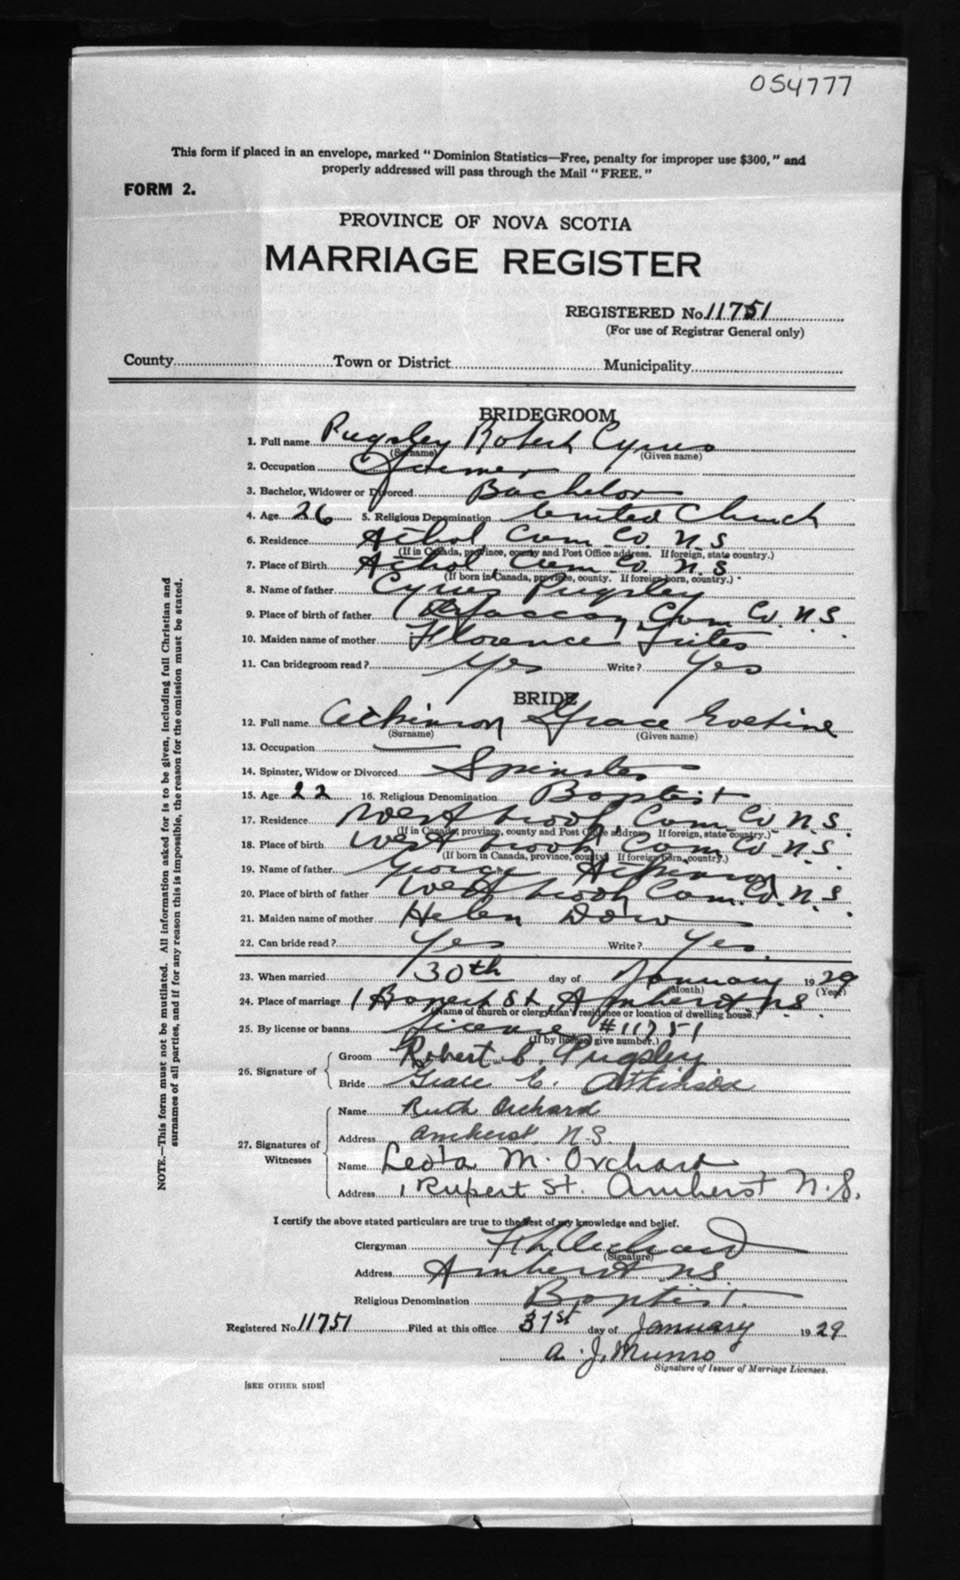 054777
This form if placed in an envelope, marked "Dominion Statistics—Free, penalty for improper use $300," and
properly addressed will pass through the Mail "FREE."
FORM 2.
PROVINCE OF NOVA SCOTIA
MARRIAGE REGISTER
REGISTERED No. 11751
(For use of Registrar General only)
County Town or District Municipality
BRIDEGROOM
1. Full name Pugsley Robert Cyrus
(Surname) (Given name)
2. Occupation Farmer
3. Bachelor, Widower or Divorced Bachelor
4. Age 26 5. Religious Denomination United Church
6. Residence Athol, Cum. Co. N.S
(If in Canada, province, county and Post Office address. If foreign, state country.)
7. Place of Birth Athol, Cum. Co. N.S
(If born in Canada, province, county. If foreign born, country.)
8. Name of father Cyrus Pugsley
9. Place of birth of father Cum Co. N.S
10. Maiden name of mother Florence
11. Can bridegroom read? Yes Write? Yes
BRIDE
12. Full name Atkinson Grace Eveline
(Surname) (Given name)
13. Occupation —
14. Spinster, Widow or Divorced Spinster
15. Age 22 16. Religious Denomination Baptist
17. Residence Westbrook, Cum. Co N.S.
(If in Canada, province, county and Post Office address. If foreign, state country.)
18. Place of birth Westbrook Cum Co N.S
(If born in Canada, province, county. If foreign born, country.)
19. Name of father George Atkinson
20. Place of birth of father Westbrook Cum. Co. N.S.
21. Maiden name of mother Helen Dow
22. Can bride read? Yes Write? Yes.
23. When married 30th day of January 1929
(Month) (Year)
24. Place of marriage 1 Rupert St Amherst N.S.
(Name of church or clergyman's residence or location of dwelling house.)
25. By license or banns License #11751
(If by license give number.)
26. Signature of
Groom Robert C. Pugsley
Bride Grace E. Atkinson
27. Signatures of Witnesses
Name Ruth Orchard
Address Amherst, N.S.
Name Leota M. Orchard
Address 1 Rupert St. Amherst N.S.
I certify the above stated particulars are true to the best of my knowledge and belief.
Clergyman Orchard
(Signature)
Address Amherst N.S.
Religious Denomination Baptist.
Registered No. 11751 Filed at this office 31st day of January 1929
A. J. Munro
Signature of Issuer of Marriage Licenses.
[SEE OTHER SIDE]
NOTE.—This form must not be mutilated. All information asked for is to be given, including full Christian and
surnames of all parties, and if for any reason this is impossible, the reason for the omission must be stated.